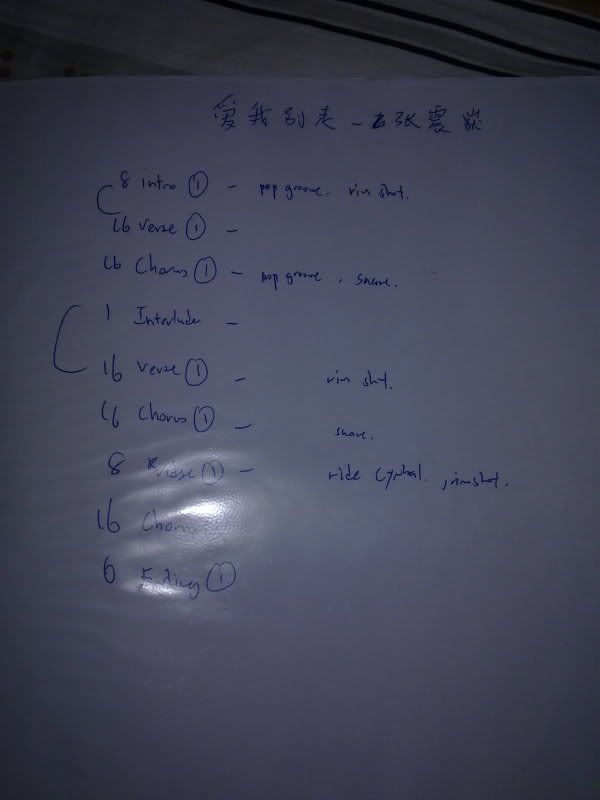 爱我别走 - 张震嶽
8 intro ① - pop groove. rim shot.
16 Verse ① -
16 Chorus ① - pop groove, snare.
1 Interlude -
16 Verse ① - rim shot.
16 Chorus ① - snare.
8 Bridge ① - ride cymbal, rimshot.
16 Chorus
6 Ending ①